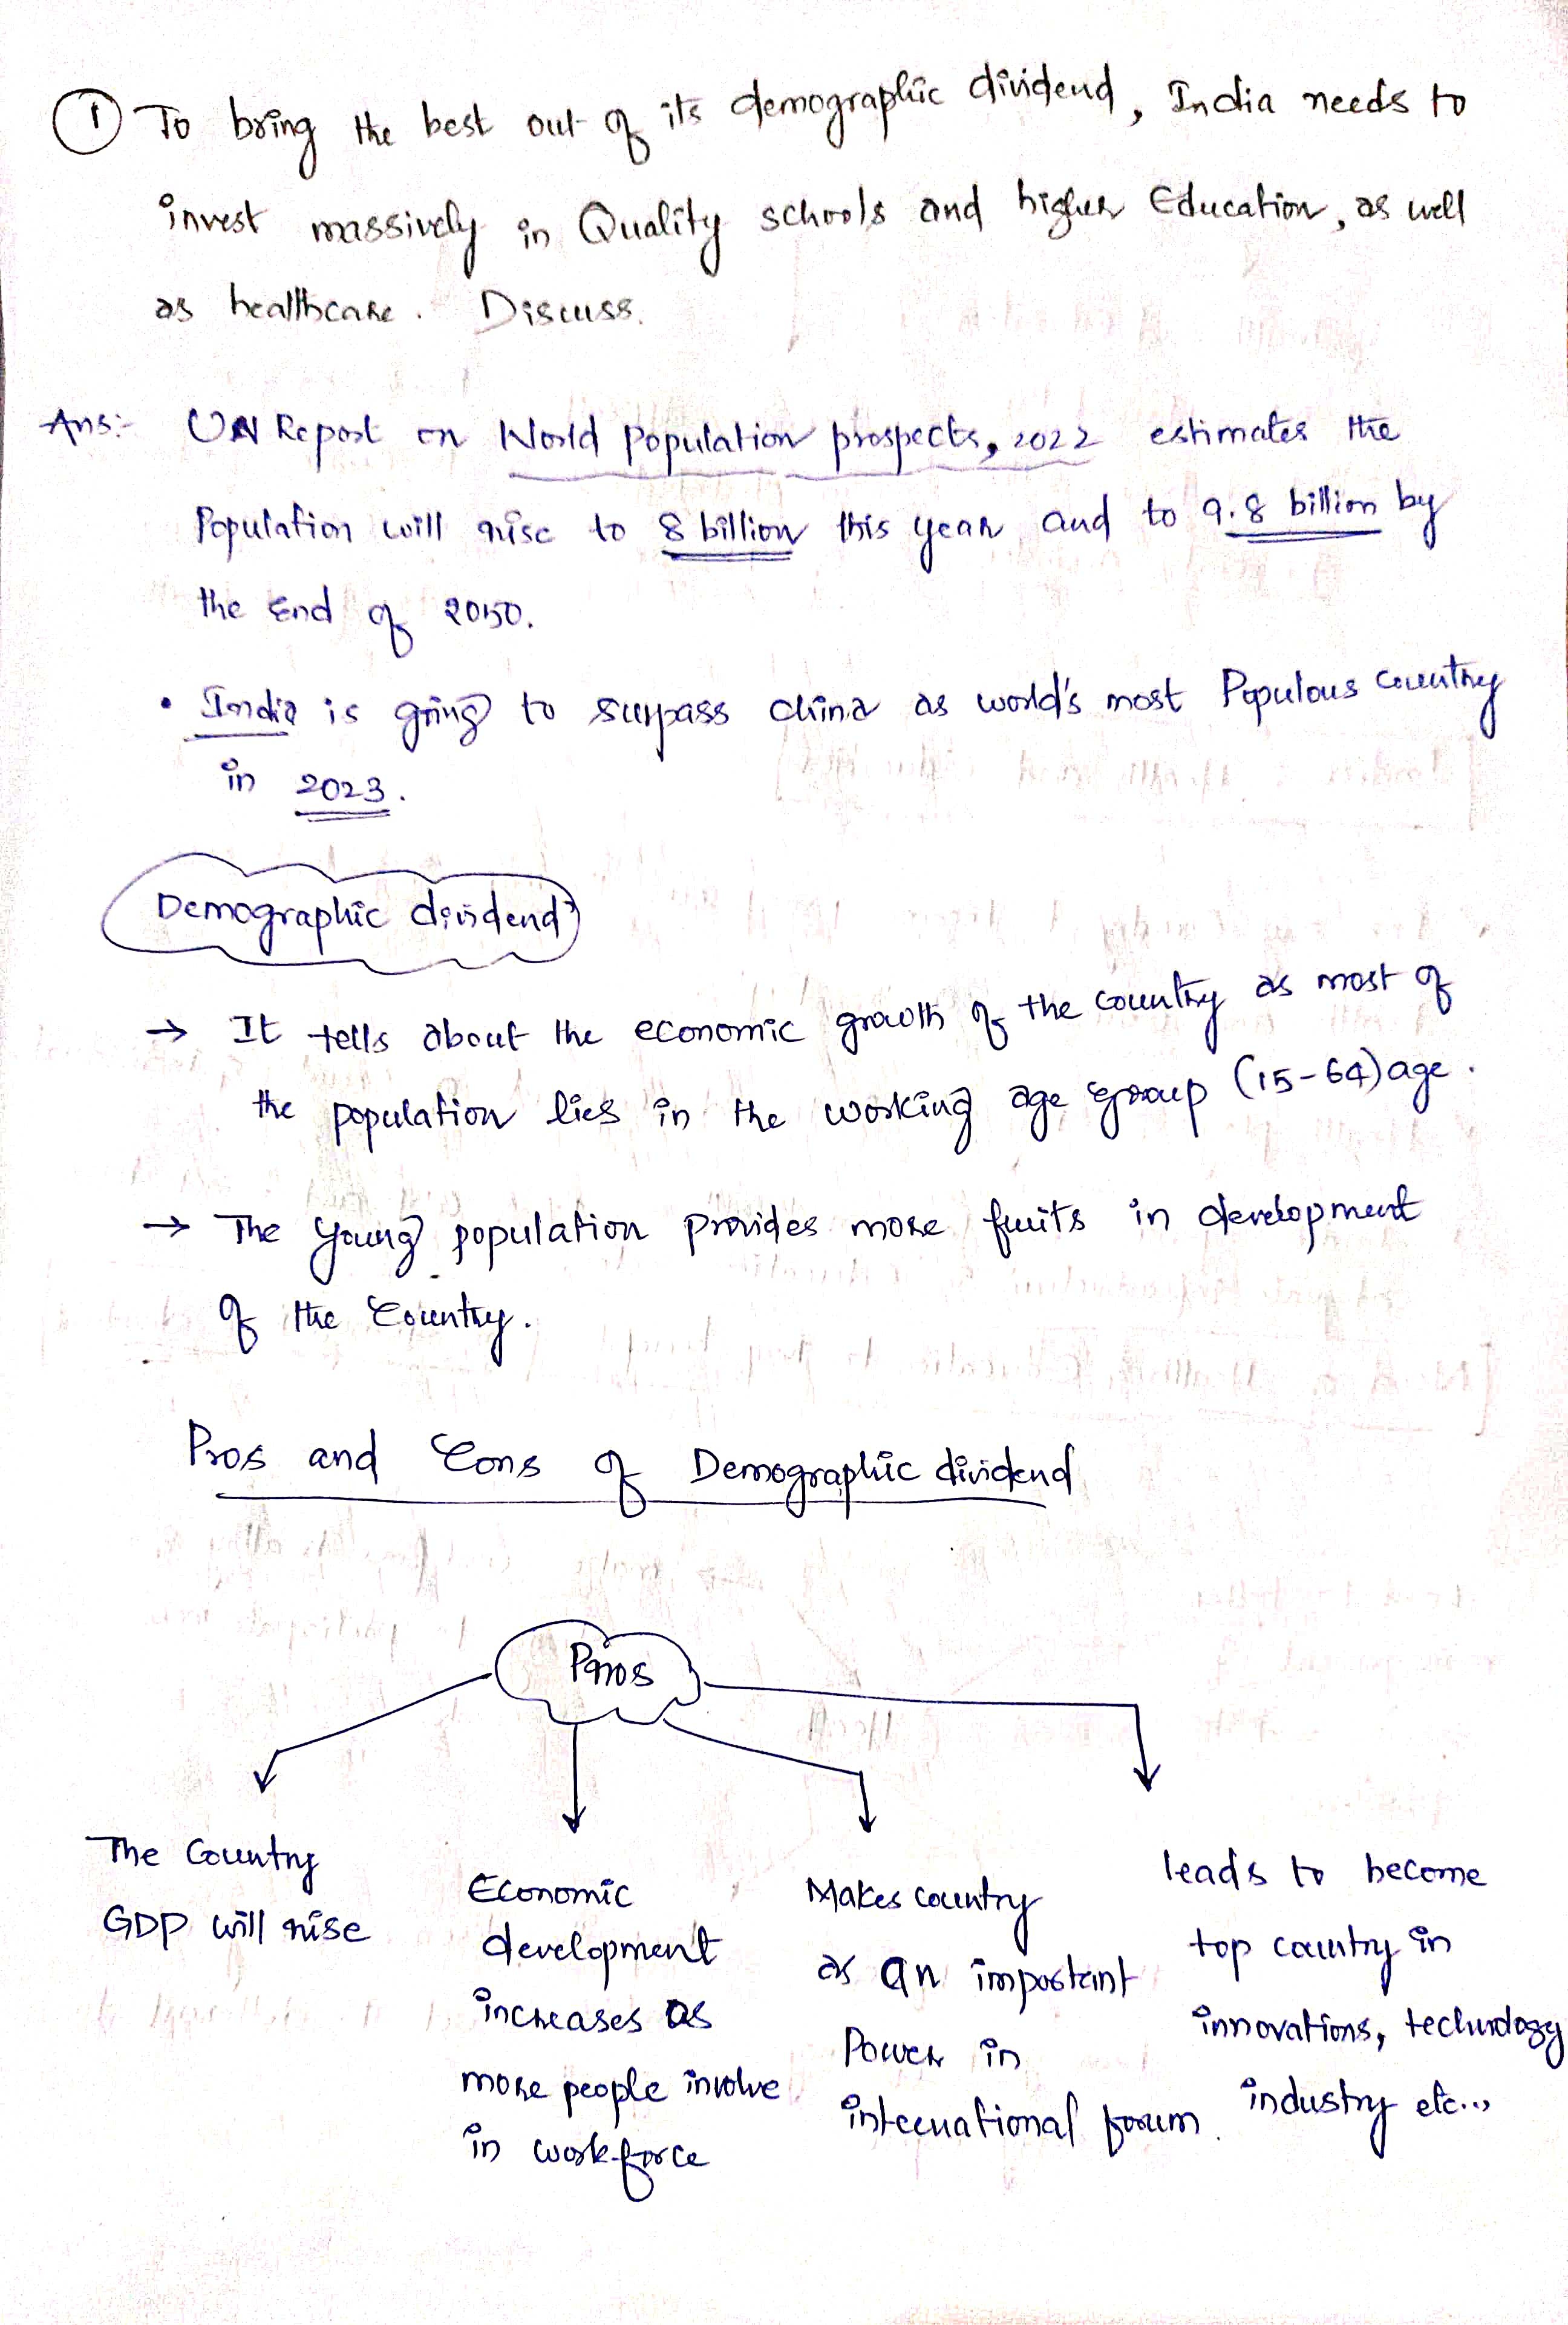 ① To bring the best out of its demographic dividend, India needs to
invest massively in Quality schools and higher Education, as well
as healthcare. Discuss.
Ans:- UN Report on World Population prospects, 2022 estimates the
Population will rise to 8 billion this year and to 9.8 billion by
the End of 2050.
• India is going to surpass china as world's most Populous Country
in 2023.
Demographic dividend
→ It tells about the economic growth of the country as most of
the population lies in the working age group (15-64) age.
→ The young population provides more fruits in development
of the Country.
Pros and Cons of Demographic dividend
Pros
The Country
GDP will rise
Economic
development
increases as
more people involve
in workforce
Makes country
as an important
Power in
international forum.
leads to become
top country in
innovations, technology
industry etc...